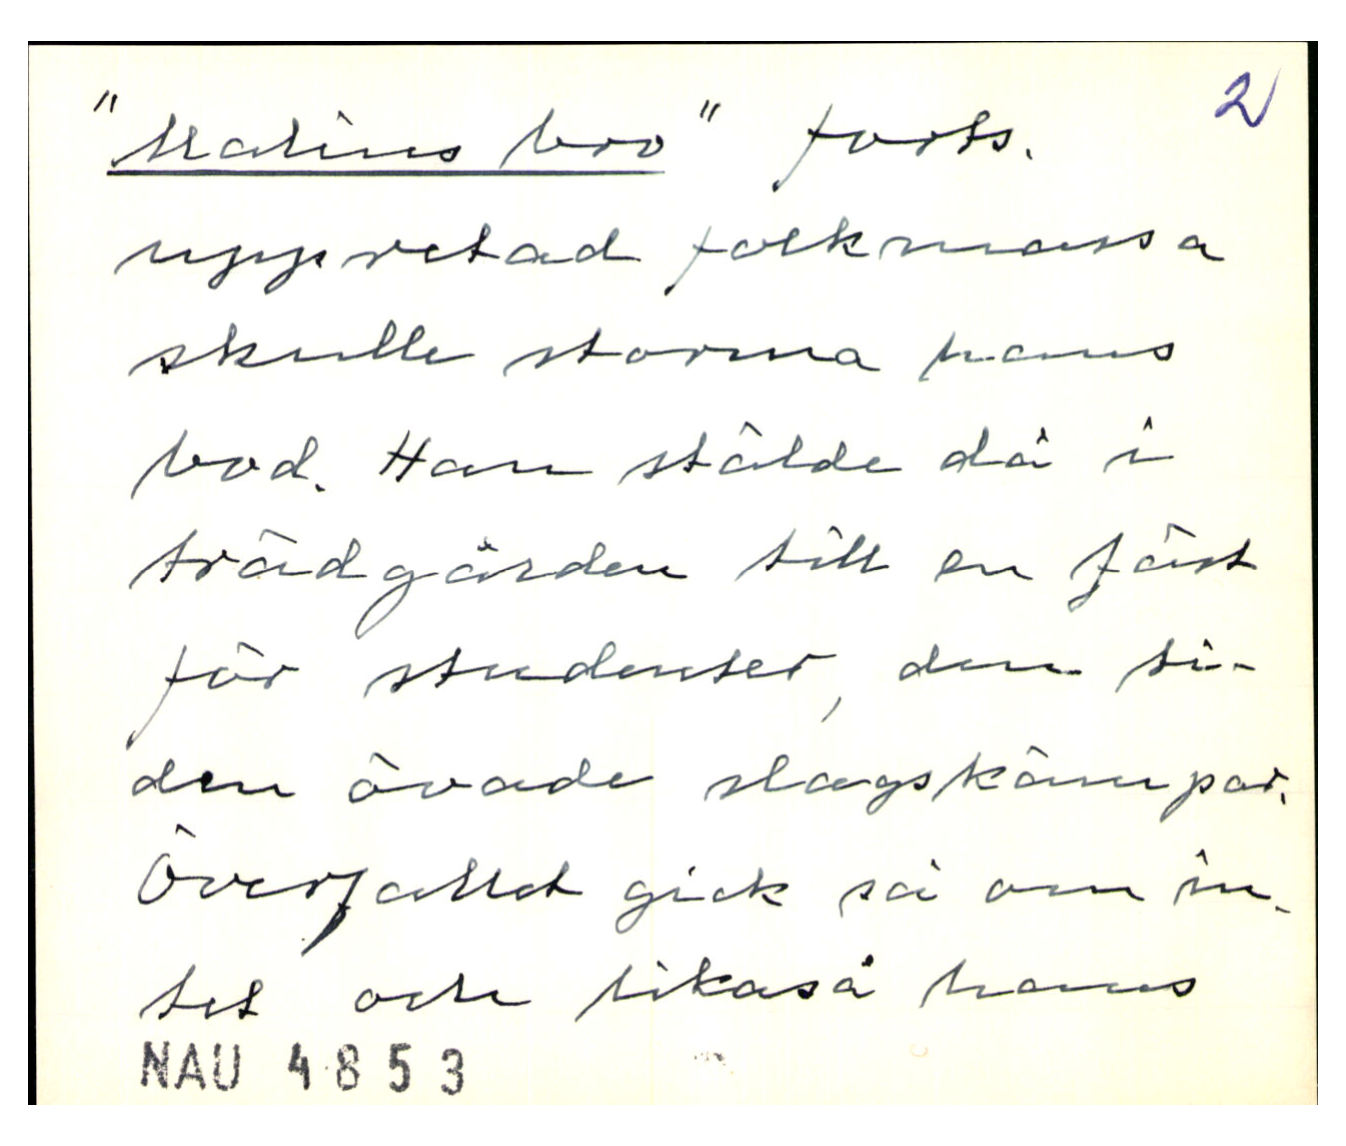 "Malins bro" forts. 2
uppretad folkmassa
skulle storma hans
bod. Han stälde då i
trädgården till en fäst
för studenter, den ti-
den övade slagskämpar.
Överfallet gick så om in-
tet och likaså hans
NAU 4853